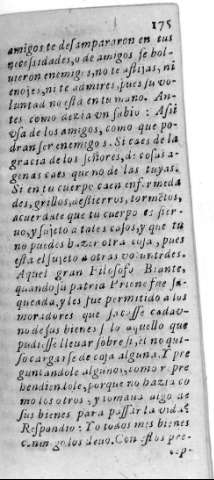 175
amigos te desampararon en tus
necessidades, o de amigos se bol-
uieron enemigos, no te aflijas, ni
enojes, ni te admires, pues su vo-
luntad no está en tu mano. An-
tes como dezia vn sabio: Assi
vsa de los amigos, como que po-
dran ser enemigos. Si caes de la
gracia de los señores, de cosas a-
genas caes que no de las tuyas.
Si en tu cuerpo caen enfermeda
des, grillos, destierros, tormẽtos,
acuerdate que tu cuerpo es sier-
uo, y sujeto a tales casos, y que tu
no puedes hazer otra cosa, pues
està el sujeto a otras voluntades.
Aquel gran Filosofo Biante,
quando su patria Priene fue sa-
queada, y les fue permitido a los
moradores que sacasse cada v-
no de sus bienes solo aquello que
pudiesse lleuar sobre si, el no qui-
so cargarse de cosa alguna. Y pre
guntandole algunos, como r pre
hendiendole, porque no hazia co
mo los otros, y tomaua algo de
sus bienes para passar la vida?
Respondio: Yo todos mis bienes
conmigo los lleuo. Con estos pre-
cep-